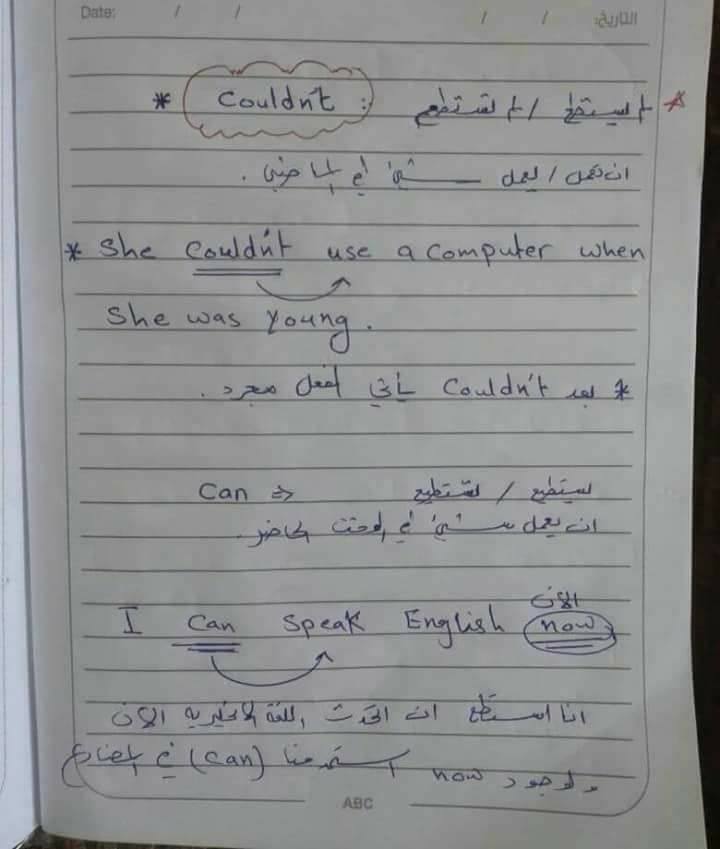 Date: / / / / التاريخ:
* Couldn't : لم يستطع / لم تستطع *
ان تعمل / يعمل شئ في الماضي .
* She couldn't use a computer when
She was young.
* بعد Couldn't يأتي فعل مجرد .
Can ⇒ يستطيع / تستطيع
ان يعمل شئ في الوقت الحاضر .
الان
I Can Speak English now.
انا استطع ان اتحدث اللغة الانجليزيه الان
ولوجود now استخدمنا (can) في المضارع
ABC